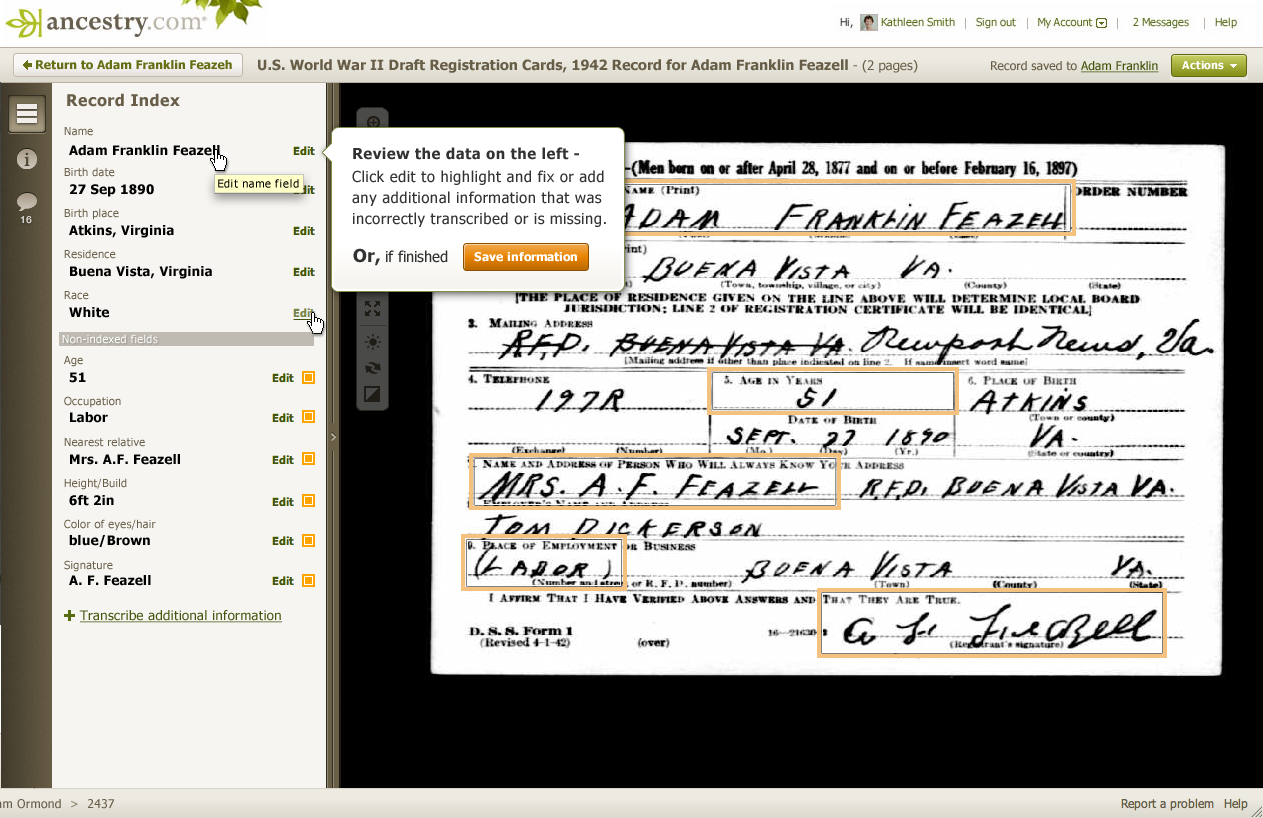 ancestry.com
Hi, Kathleen Smith | Sign out | My Account | 2 Messages | Help
Return to Adam Franklin Feazeh
U.S. World War II Draft Registration Cards, 1942 Record for Adam Franklin Feazell - (2 pages)
Record saved to Adam Franklin
Actions
Record Index
Name
Adam Franklin Feazell Edit
Edit name field
Birth date
27 Sep 1890 dit
Birth place
Atkins, Virginia Edit
Residence
Buena Vista, Virginia Edit
Race
White Edit
Non-indexed fields
Age
51 Edit
Occupation
Labor Edit
Nearest relative
Mrs. A.F. Feazell Edit
Height/Build
6ft 2in Edit
Color of eyes/hair
blue/Brown Edit
Signature
A. F. Feazell Edit
Transcribe additional information
16
Review the data on the left -
Click edit to highlight and fix or add
any additional information that was
incorrectly transcribed or is missing.
Or, if finished Save information
-(Men born on or after April 28, 1877 and on or before February 16, 1897)
NAME (Print) ORDER NUMBER
ADAM FRANKLIN FEAZELL
BUENA VISTA VA.
(Town, township, village, or city) (County) (State)
[THE PLACE OF RESIDENCE GIVEN ON THE LINE ABOVE WILL DETERMINE LOCAL BOARD
JURISDICTION; LINE 2 OF REGISTRATION CERTIFICATE WILL BE IDENTICAL]
3. MAILING ADDRESS
R.F.D. BUENA VISTA VA. Newport News, Va.
[Mailing address if other than place indicated on line 2. If same insert word same]
4. TELEPHONE 5. AGE IN YEARS 6. PLACE OF BIRTH
197R 51 ATKINS
(Town or county)
DATE OF BIRTH
SEPT. 27 1890 VA.
(Exchange) (Number) (Mo.) (Day) (Yr.) (State or country)
7. NAME AND ADDRESS OF PERSON WHO WILL ALWAYS KNOW YOUR ADDRESS
MRS. A. F. FEAZELL R.F.D. BUENA VISTA VA.
EMPLOYER'S NAME AND ADDRESS
TOM DICKERSON
9. PLACE OF EMPLOYMENT OR BUSINESS
(LABOR) BUENA VISTA VA.
(Number and street or R. F. D. number) (Town) (County) (State)
I AFFIRM THAT I HAVE VERIFIED ABOVE ANSWERS AND THAT THEY ARE TRUE.
A F Feazell
D. S. S. Form 1
(Revised 4-1-42) (over) 16—21630 (Registrant's signature)
am Ormond > 2437
Report a problem Help